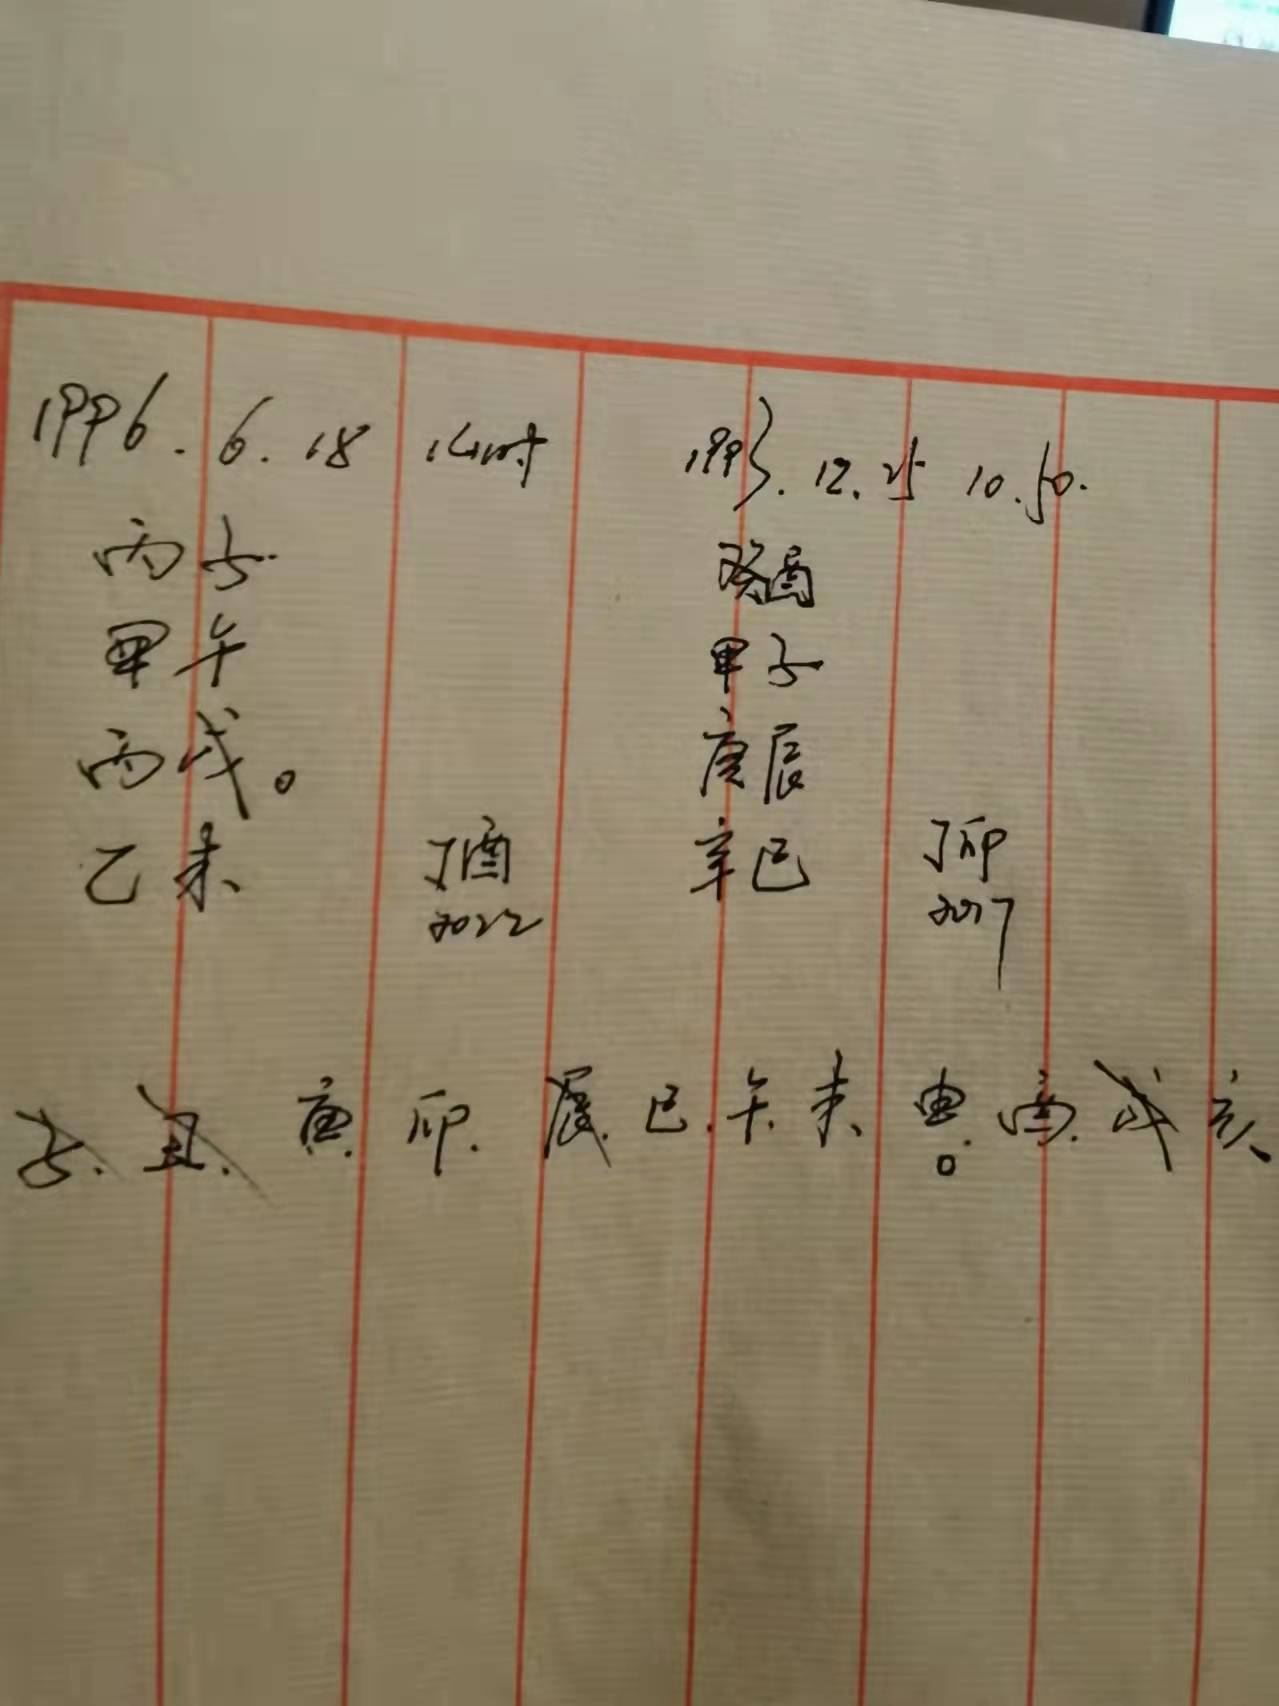 1996.6.18 14时 1993.12.25 10.50.
丙子 癸酉
甲午 甲子
丙戌。 庚辰
乙未 丁酉 辛巳 丁卯
2022 2017
子.丑.寅.卯.辰.巳.午.未.申.酉.戌亥